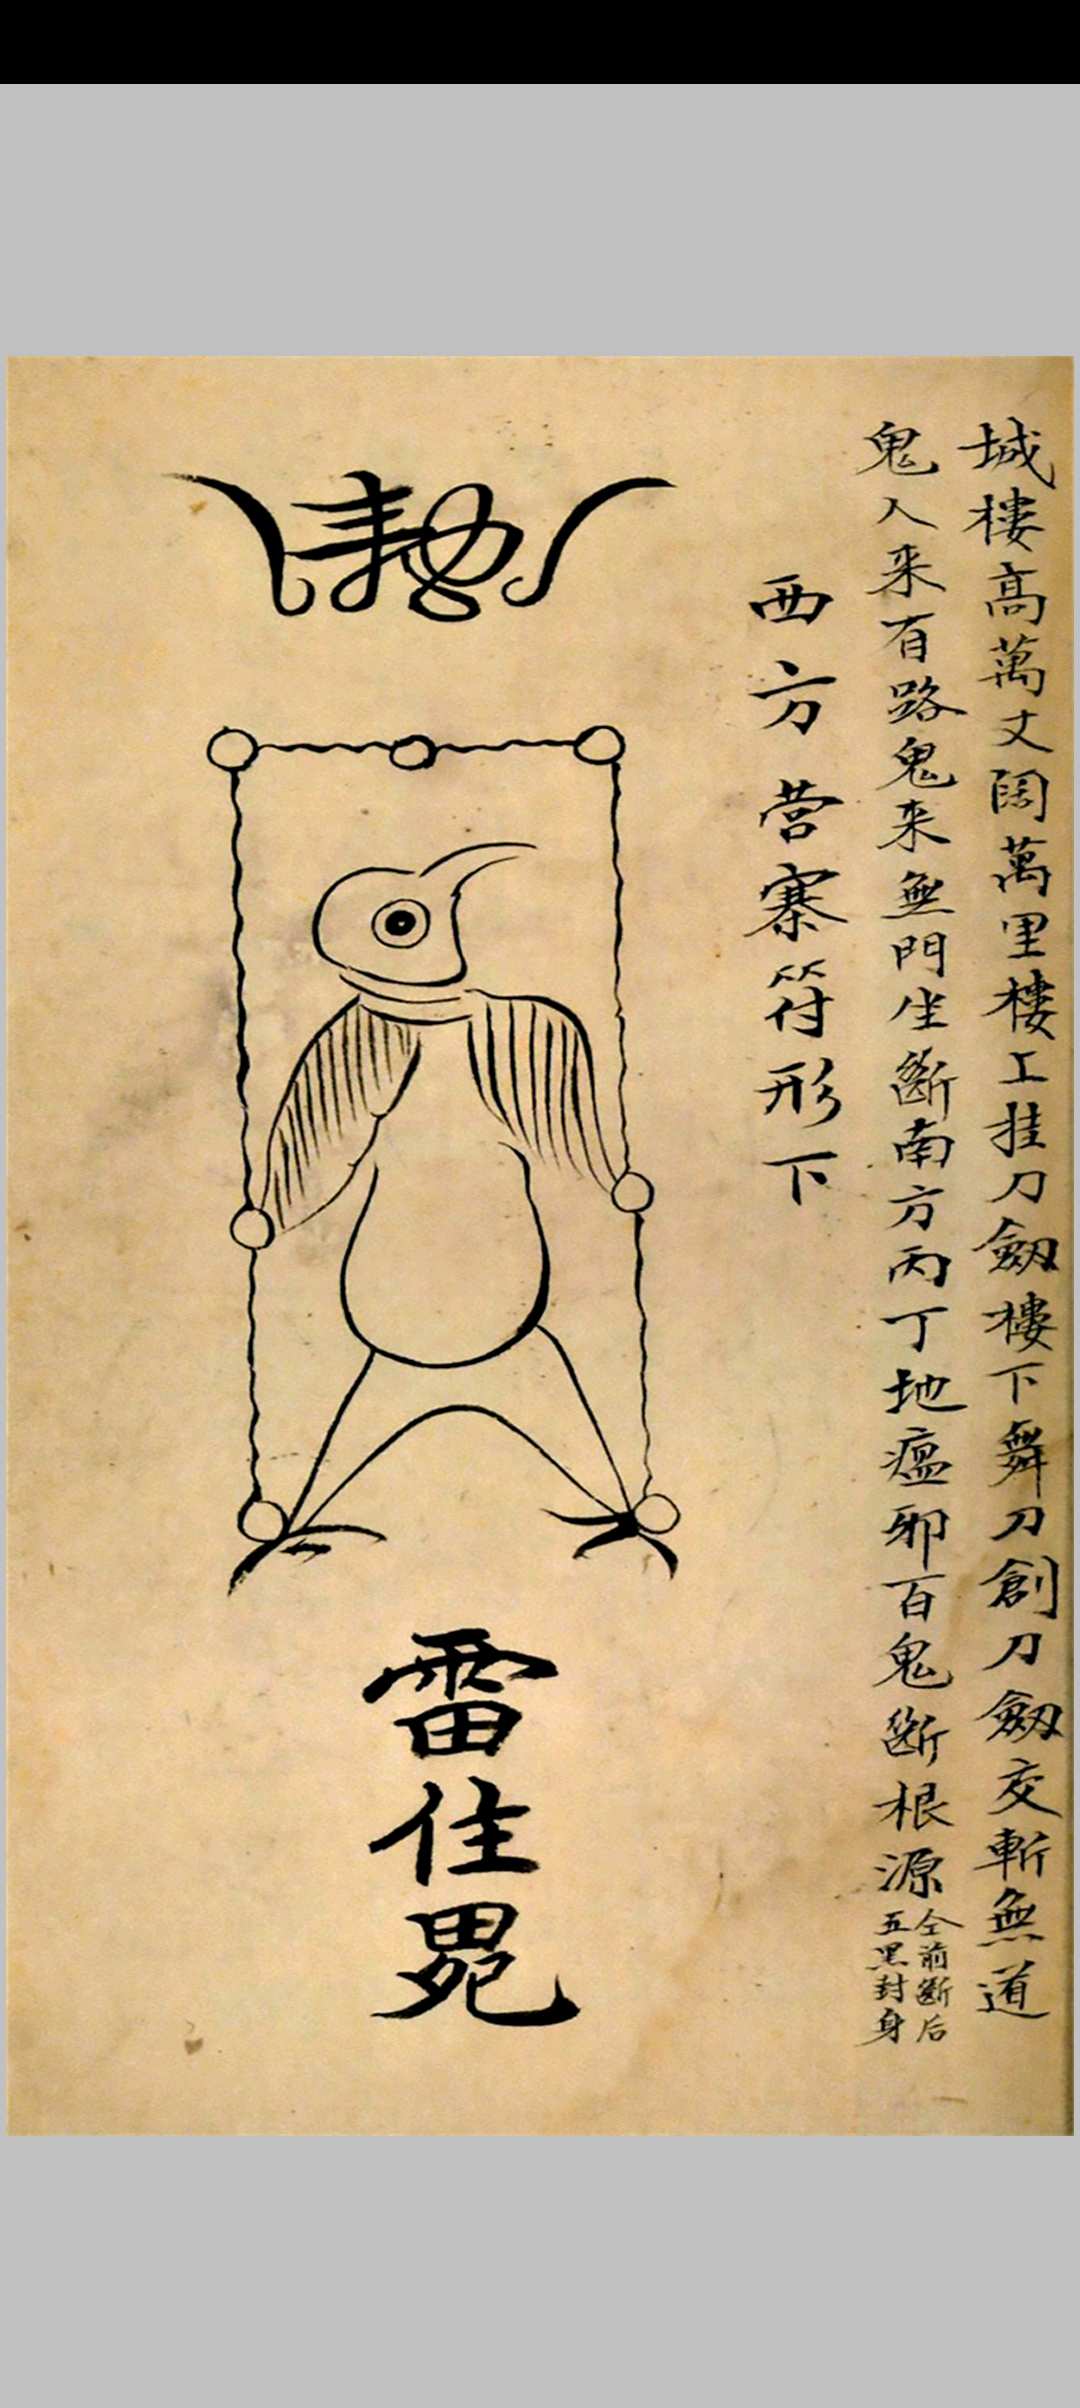 城樓高萬丈闊萬里樓工挂刀劔樓下舞刀創刀劔交斬無道
鬼人来有路鬼来無門坐斷南方丙丁地瘟邪百鬼斷根源
仝前斷后
五黑封身
西方营寨符形下
雷住